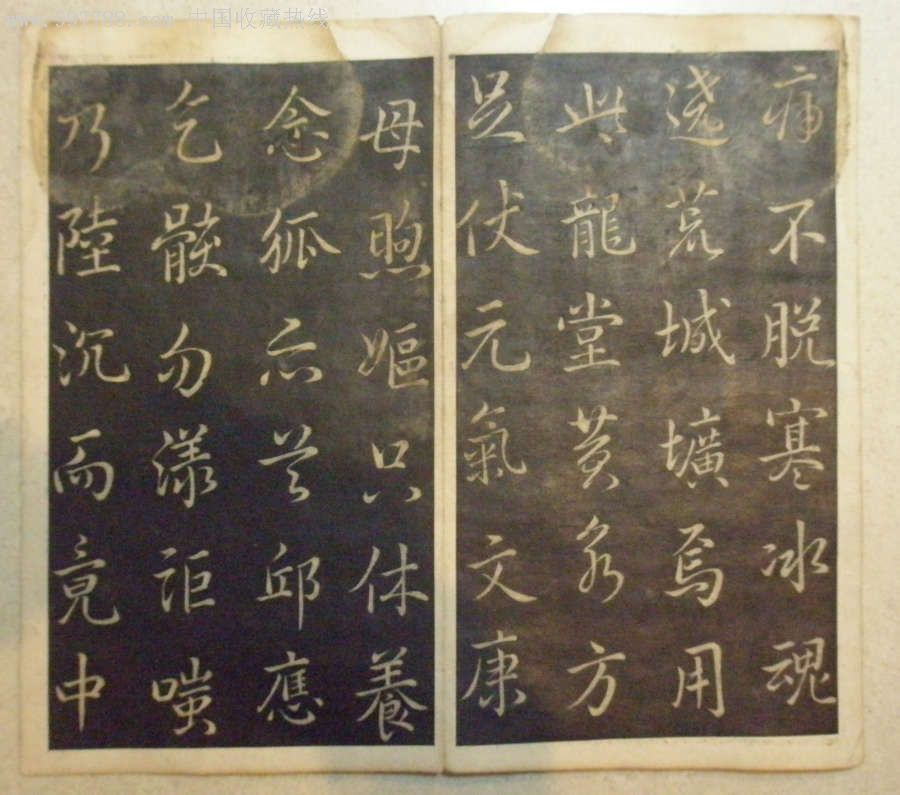 www.997788.com 中国收藏热线
不脱寒冰魂
遶荒城壙焉用
此龍堂黄泉方
足伏元氣文康
母煦嫗只休養
念狐亦首邱應
乞骸勿漾詎嗤
乃陸沉而竟中